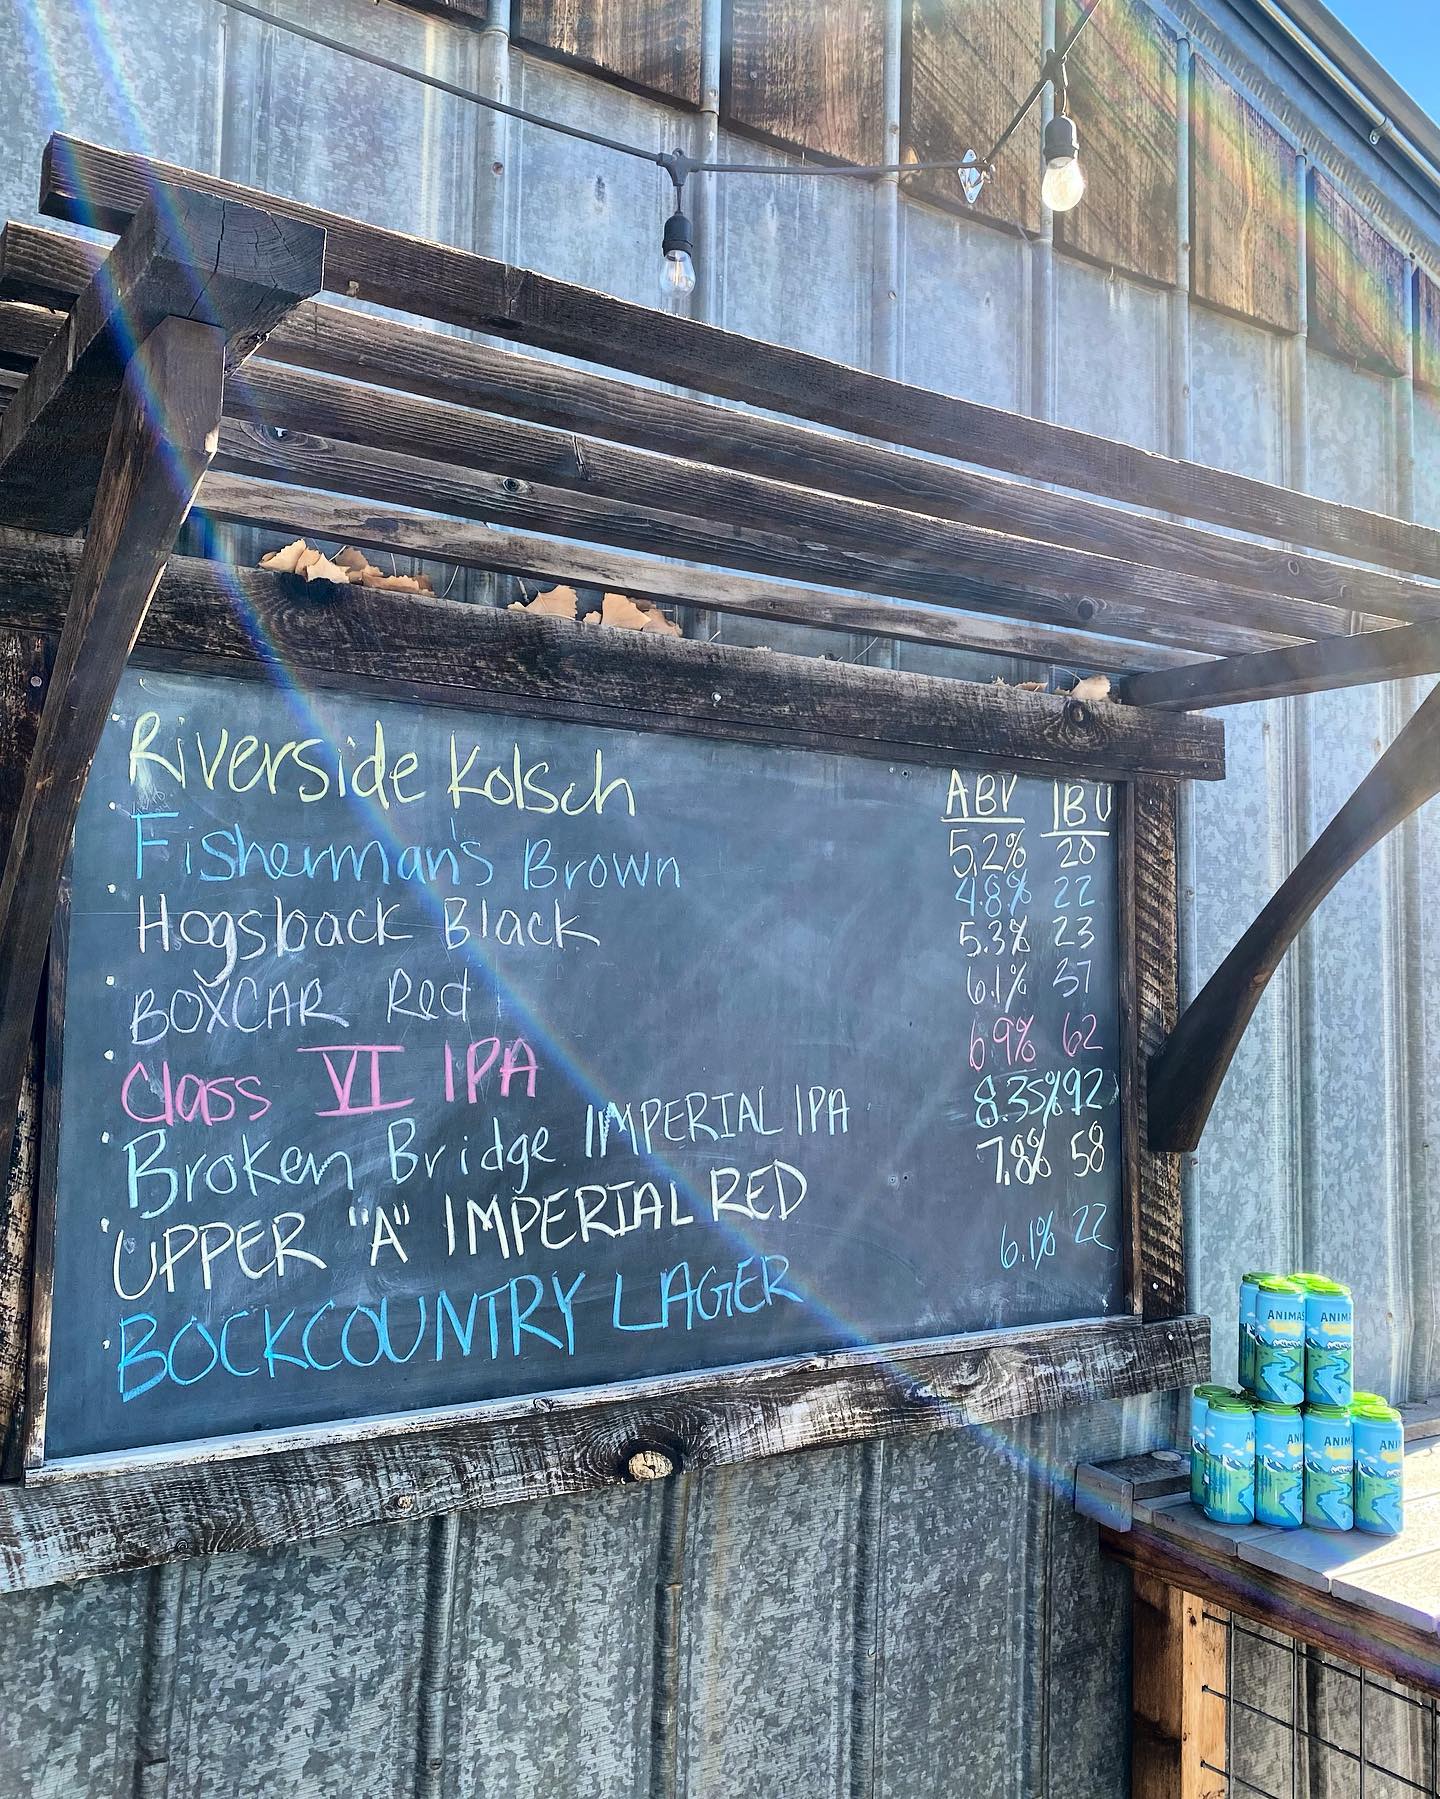 Riverside Kolsch
ABV IBU
5.2% 20
Fisherman's Brown 4.8% 22
Hogsback Black 5.3% 23
BOXCAR Red 6.1% 37
Class VI IPA 6.9% 62
Broken Bridge IMPERIAL IPA 8.35% 92
UPPER "A" IMPERIAL RED 7.8% 58
BOCKCOUNTRY LAGER 6.1% 22
ANIMAS
ANIMA
AN
ANI
ANIMA
ANI